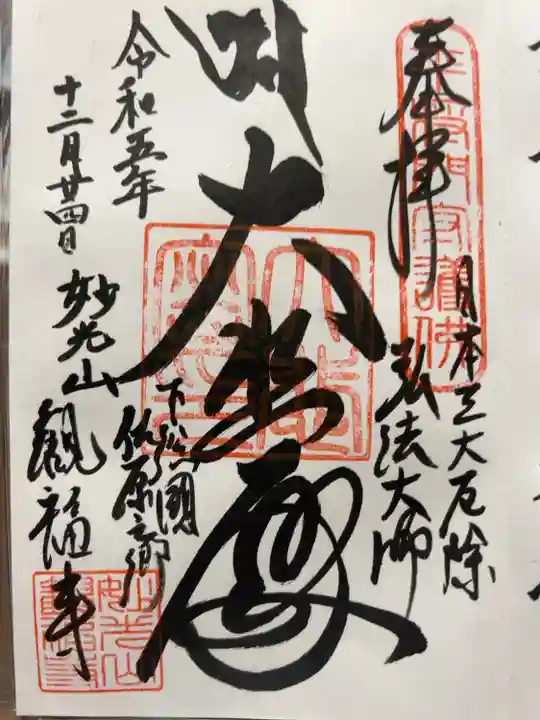 奉拝
日本三大厄除
弘法大師
大悲殿
下総國
佐原之郷
令和五年
十二月廿四日
妙光山
観福寺